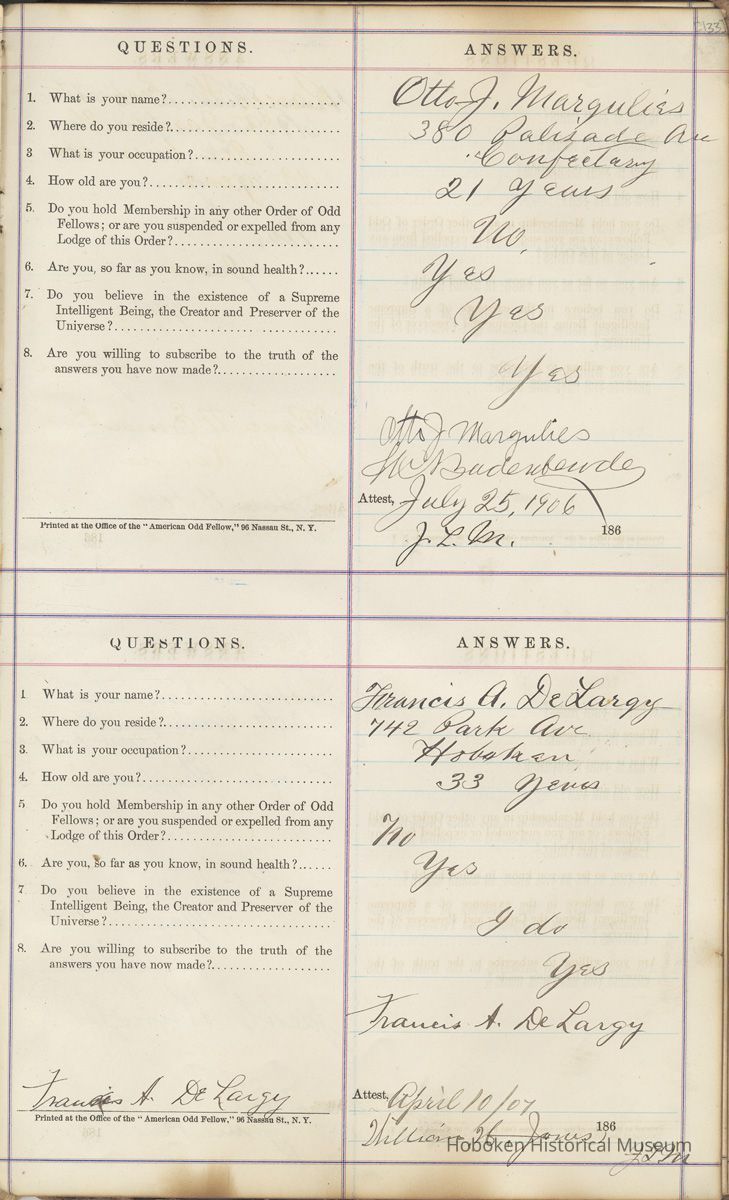 133
QUESTIONS.
ANSWERS.
1. What is your name?
Otto J. Margulies
2. Where do you reside?
380 Palisade Ave
3 What is your occupation?
Confectary
4. How old are you?
21 Years
5. Do you hold Membership in any other Order of Odd
Fellows; or are you suspended or expelled from any
Lodge of this Order?
No,
6. Are you, so far as you know, in sound health?
Yes
7. Do you believe in the existence of a Supreme
Intelligent Being, the Creator and Preserver of the
Universe?
Yes
8. Are you willing to subscribe to the truth of the
answers you have now made?
Yes
Otto J Margulies
Attest, July 25, 1906
186
J. L. M.
Printed at the Office of the "American Odd Fellow," 96 Nassau St., N. Y.
QUESTIONS.
ANSWERS.
1 What is your name?
Francis A. DeLargy
2. Where do you reside?
742 Park Ave
3. What is your occupation?
Hoboken
4. How old are you?
33 Years
5 Do you hold Membership in any other Order of Odd
Fellows; or are you suspended or expelled from any
Lodge of this Order?
No
6. Are you, so far as you know, in sound health?
Yes
7 Do you believe in the existence of a Supreme
Intelligent Being, the Creator and Preserver of the
Universe?
I do
8. Are you willing to subscribe to the truth of the
answers you have now made?
Yes
Francis A. DeLargy
Francis A. DeLargy
Attest, April 10/07
Printed at the Office of the "American Odd Fellow," 96 Nassau St., N. Y.
186
William H. Jones
J L M
Hoboken Historical Museum